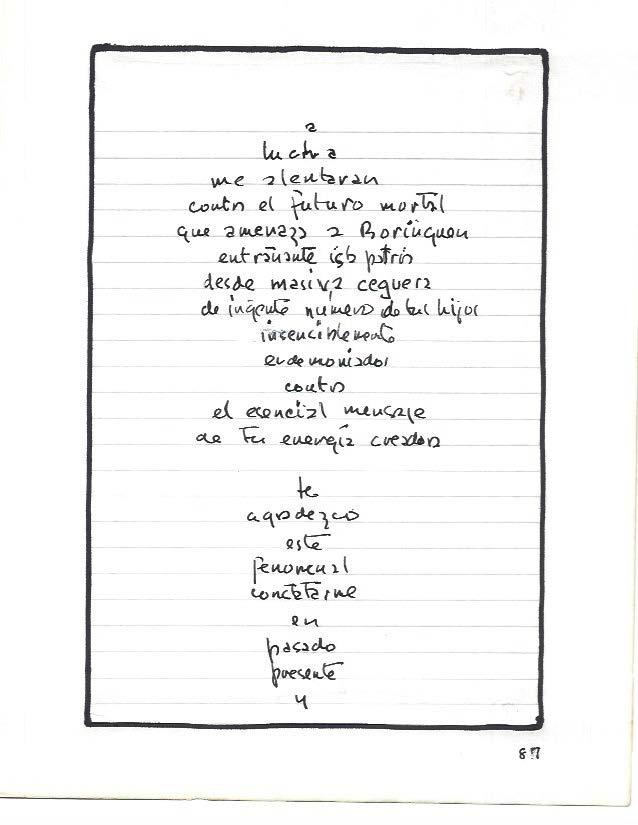 a
luchar
me alentaran
contra el futuro mortal
que amenaza a Borinquen
entrañante isla patria
desde masiva ceguera
de ingente número de tus hijos
insenciblemente
endemoniados
contra
el esencial mensaje
de Tu energía creadora
te
agradezco
este
fenomenal
conctatarme
en
pasado
presente
y
87